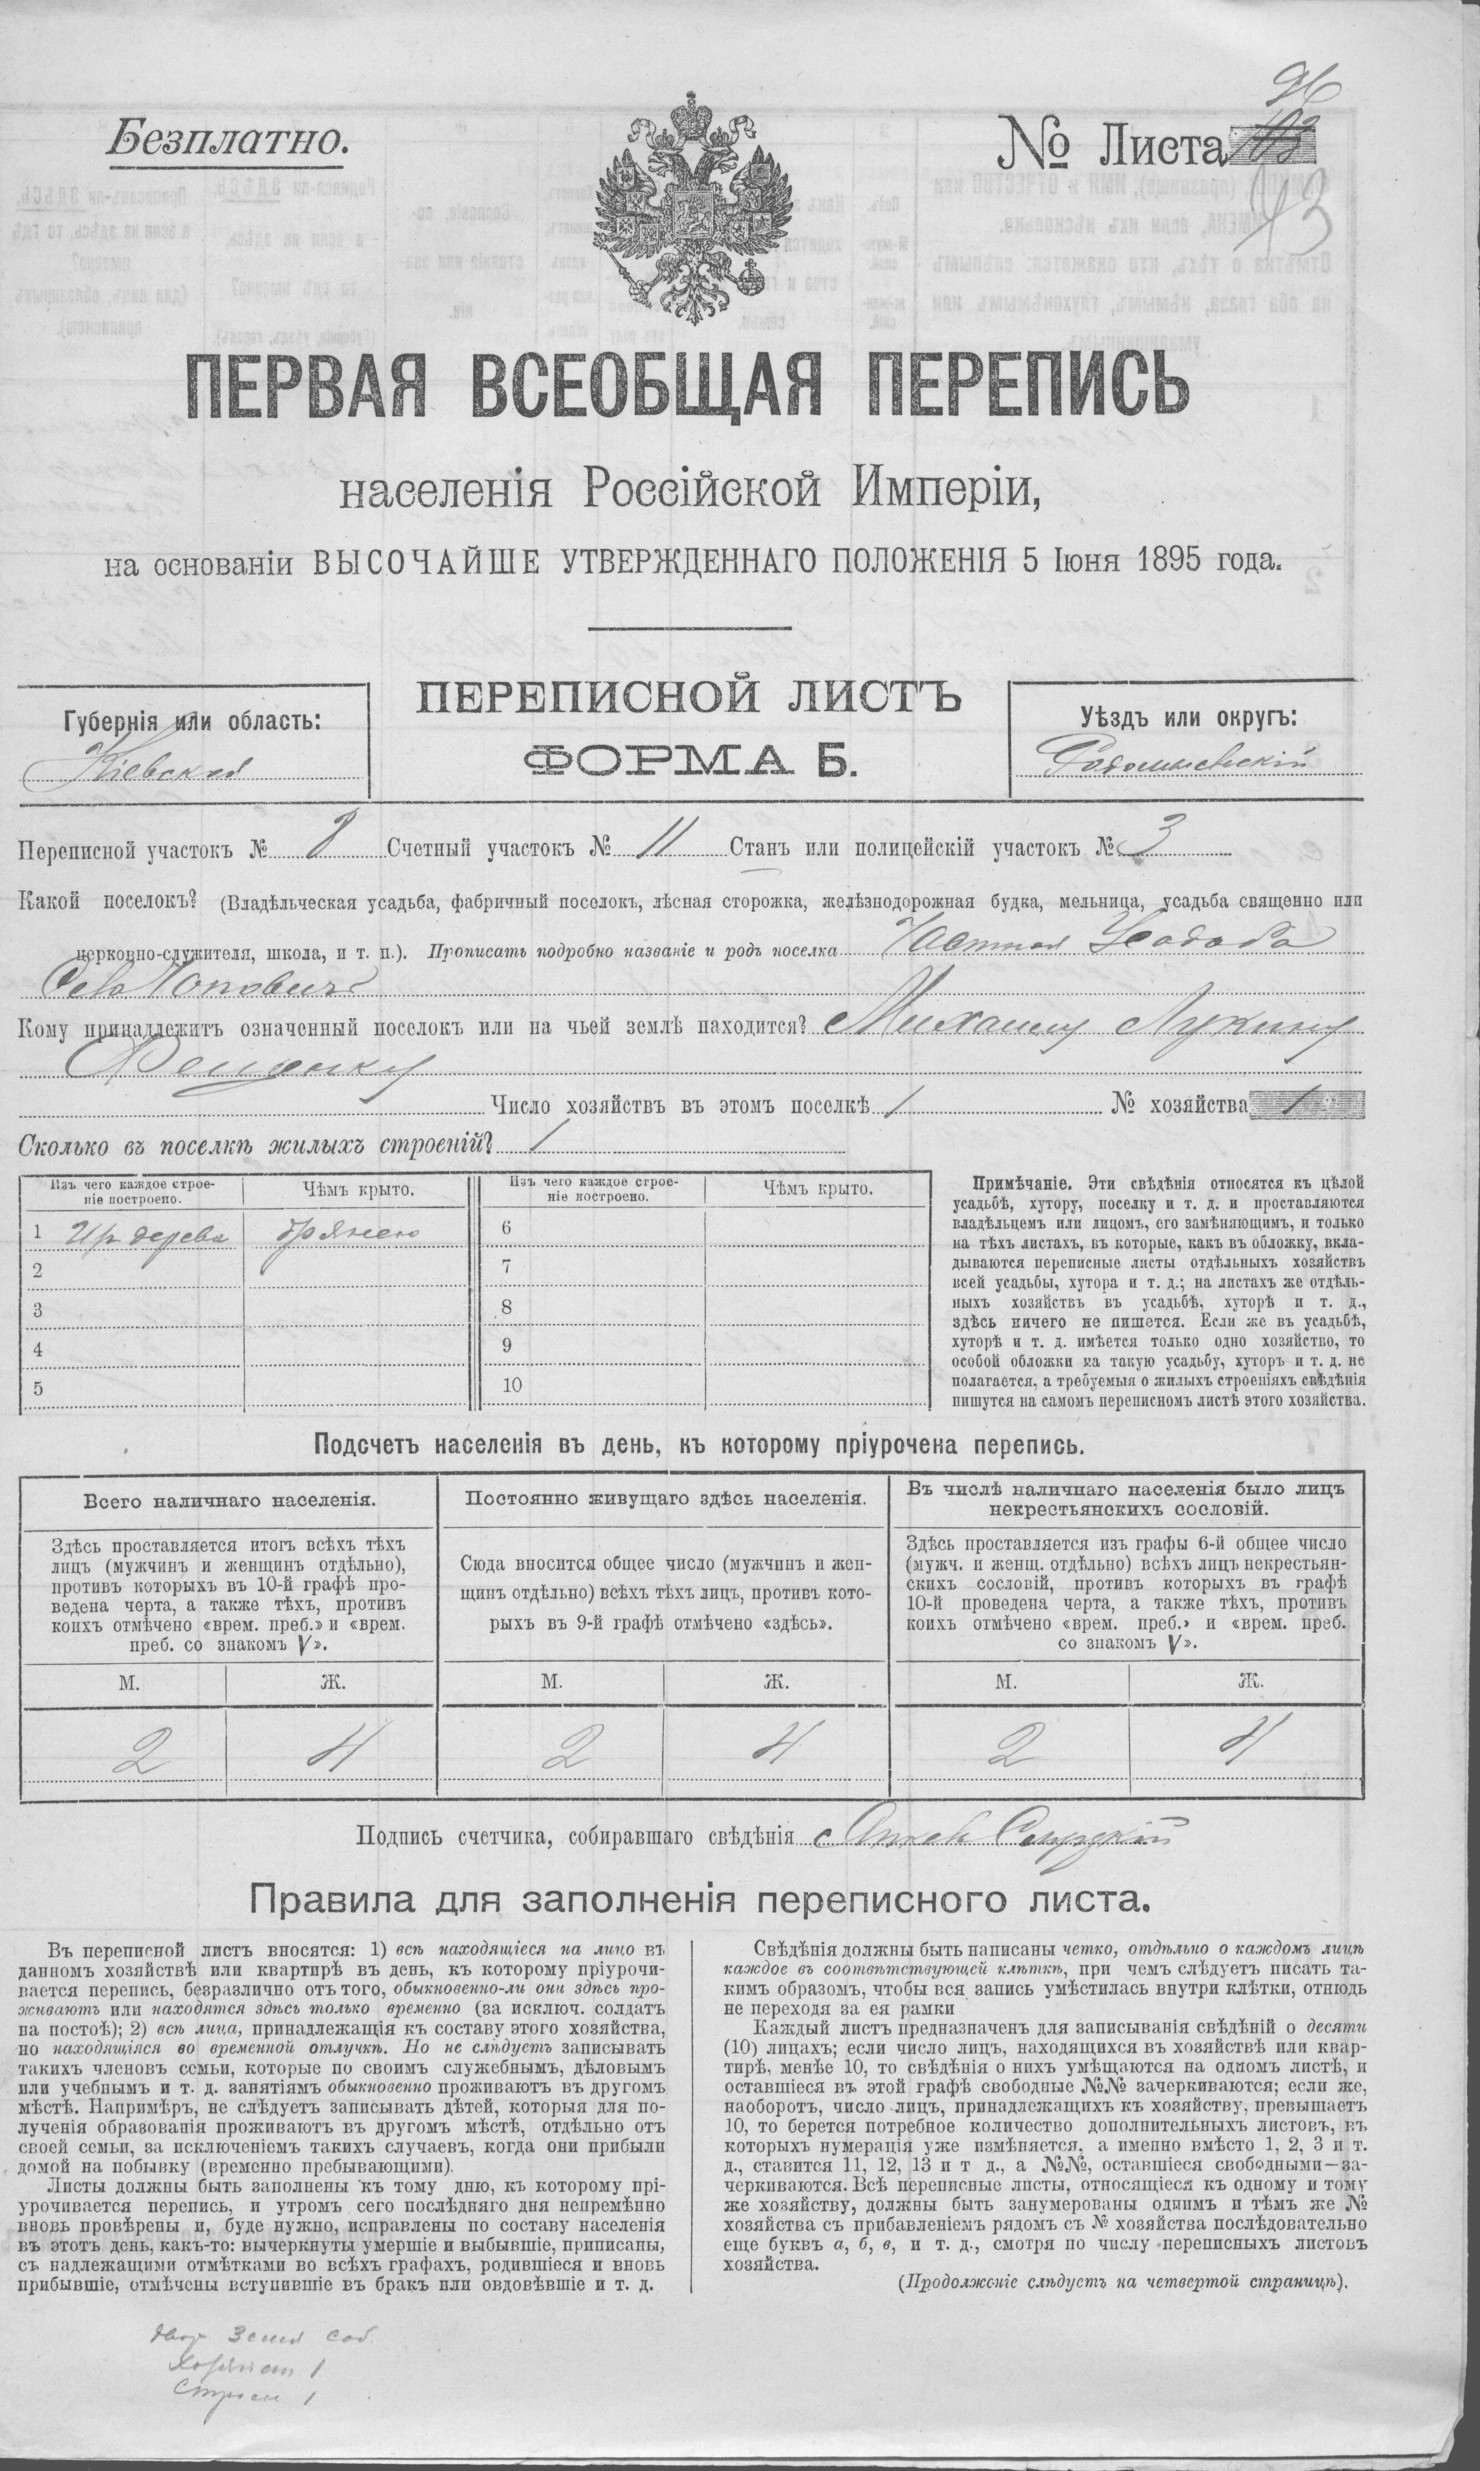 Безплатно.
№ Листа 103
96
93
ПЕРВАЯ ВСЕОБЩАЯ ПЕРЕПИСЬ
населенія Россійской Имперіи,
на основаніи ВЫСОЧАЙШЕ УТВЕРЖДЕННАГО ПОЛОЖЕНІЯ 5 Іюня 1895 года.
Губернія или область:
Кіевская
ПЕРЕПИСНОЙ ЛИСТЪ
ФОРМА Б.
Уѣздъ или округъ:
Радомысльскій
Переписной участокъ № 8 Счетный участокъ № 11 Станъ или полицейскій участокъ № 3
Какой поселокъ? (Владѣльческая усадьба, фабричный поселокъ, лѣсная сторожка, желѣзнодорожная будка, мельница, усадьба священно или
церковно-служителя, школа, и т. п.). Прописать подробно названіе и родъ поселка Частная Усадьба
Села
Кому принадлежитъ означенный поселокъ или на чьей землѣ находится? Михаилу Лукичу
Число хозяйствъ въ этомъ поселкѣ 1 № хозяйства 1
Сколько въ поселкѣ жилыхъ строеній? 1
Изъ чего каждое строеніе построено. Чѣмъ крыто. Изъ чего каждое строеніе построено. Чѣмъ крыто.
1 Из дерева дранею 6
2 7
3 8
4 9
5 10
Примѣчаніе. Эти свѣдѣнія относятся къ цѣлой
усадьбѣ, хутору, поселку и т. д. и проставляются
владѣльцемъ или лицомъ, его замѣняющимъ, и только
на тѣхъ листахъ, въ которые, какъ въ обложку, вкла-
дываются переписные листы отдѣльныхъ хозяйствъ
всей усадьбы, хутора и т. д.; на листахъ же отдѣль-
ныхъ хозяйствъ въ усадьбѣ, хуторѣ и т. д.,
здѣсь ничего не пишется. Если же въ усадьбѣ,
хуторѣ и т. д. имѣется только одно хозяйство, то
особой обложки на такую усадьбу, хуторъ и т. д. не
полагается, а требуемыя о жилыхъ строеніяхъ свѣдѣнія
пишутся на самомъ переписномъ листѣ этого хозяйства.
Подсчетъ населенія въ день, къ которому пріурочена перепись.
Всего наличнаго населенія.
Здѣсь проставляется итогъ всѣхъ тѣхъ
лицъ (мужчинъ и женщинъ отдѣльно),
противъ которыхъ въ 10-й графѣ про-
ведена черта, а также тѣхъ, противъ
коихъ отмѣчено «врем. преб.» и «врем.
преб. со знакомъ V».
М. Ж.
2 4
Постоянно живущаго здѣсь населенія.
Сюда вносится общее число (мужчинъ и жен-
щинъ отдѣльно) всѣхъ тѣхъ лицъ, противъ кото-
рыхъ въ 9-й графѣ отмѣчено «здѣсь».
М. Ж.
2 4
Въ числѣ наличнаго населенія было лицъ
некрестьянскихъ сословій.
Здѣсь проставляется изъ графы 6-й общее число
(мужч. и женщ. отдѣльно) всѣхъ лицъ некрестьян-
скихъ сословій, противъ которыхъ въ графѣ
10-й проведена черта, а также тѣхъ, противъ
коихъ отмѣчено «врем. преб.» и «врем. преб.
со знакомъ V».
М. Ж.
2 4
Подпись счетчика, собиравшаго свѣдѣнія
Правила для заполненія переписного листа.
Въ переписной листъ вносятся: 1) всѣ находящіеся на лицо въ
данномъ хозяйствѣ или квартирѣ въ день, къ которому пріурочи-
вается перепись, безразлично отъ того, обыкновенно-ли они здѣсь про-
живаютъ или находятся здѣсь только временно (за исключ. солдатъ
на постоѣ); 2) всѣ лица, принадлежащія къ составу этого хозяйства,
но находящіяся во временной отлучкѣ. Но не слѣдуетъ записывать
такихъ членовъ семьи, которые по своимъ служебнымъ, дѣловымъ
или учебнымъ и т. д. занятіямъ обыкновенно проживаютъ въ другомъ
мѣстѣ. Напримѣръ, не слѣдуетъ записывать дѣтей, которыя для по-
лученія образованія проживаютъ въ другомъ мѣстѣ, отдѣльно отъ
своей семьи, за исключеніемъ такихъ случаевъ, когда они прибыли
домой на побывку (временно пребывающими).
Листы должны быть заполнены къ тому дню, къ которому прі-
урочивается перепись, и утромъ сего послѣдняго дня непремѣнно
вновь провѣрены и, буде нужно, исправлены по составу населенія
въ этотъ день, какъ-то: вычеркнуты умершіе и выбывшіе, приписаны,
съ надлежащими отмѣтками во всѣхъ графахъ, родившіеся и вновь
прибывшіе, отмѣчены вступившіе въ бракъ или овдовѣвшіе и т. д.
Свѣдѣнія должны быть написаны четко, отдѣльно о каждомъ лицѣ
каждое въ соотвѣтствующей клѣткѣ, при чемъ слѣдуетъ писать та-
кимъ образомъ, чтобы вся запись умѣстилась внутри клѣтки, отнюдь
не переходя за ея рамки
Каждый листъ предназначенъ для записыванія свѣдѣній о десяти
(10) лицахъ; если число лицъ, находящихся въ хозяйствѣ или квар-
тирѣ, менѣе 10, то свѣдѣнія о нихъ умѣщаются на одномъ листѣ, и
оставшіеся въ этой графѣ свободные №№ зачеркиваются; если же,
наоборотъ, число лицъ, принадлежащихъ къ хозяйству, превышаетъ
10, то берется потребное количество дополнительныхъ листовъ, въ
которыхъ нумерація уже измѣняется, а именно вмѣсто 1, 2, 3 и т.
д., ставится 11, 12, 13 и т д., а №№, оставшіеся свободными—за-
черкиваются. Всѣ переписные листы, относящіеся къ одному и тому
же хозяйству, должны быть занумерованы однимъ и тѣмъ же №
хозяйства съ прибавленіемъ рядомъ съ № хозяйства послѣдовательно
еще буквъ а, б, в, и т. д., смотря по числу переписныхъ листовъ
хозяйства.
(Продолженіе слѣдуетъ на четвертой страницѣ).
двор Земля соб.
Хозяйст 1
Строен 1